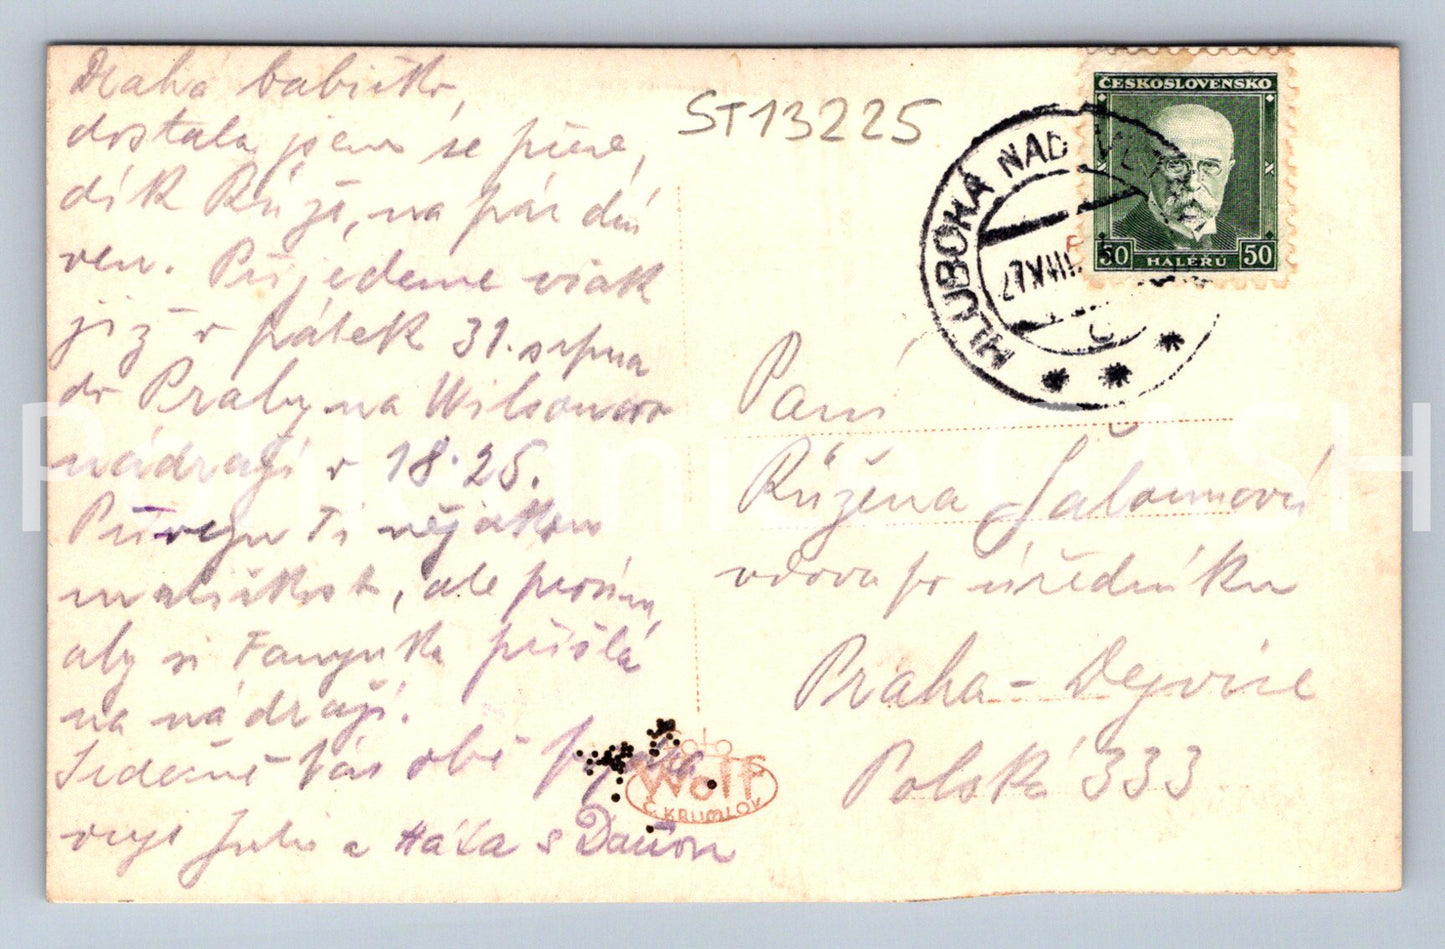 Drahá babičko,
dostala jsem se přece,
dík Růže, na pár dní
ven. Přijedeme však
již v pátek 31. srpna
do Prahy na Wilsonovo
nádraží v 18.25.
Přivezu Ti nějakou
maličkost, ale prosím,
aby si Fanynka přišla
na nádraží.
Srdečně Vás obě
Julie a Háta s Danou
ST13225
ČESKOSLOVENSKO
50 HALÉŘŮ 50
HLUBOKÁ NAD VLT
VIII
Paní
Růžena Šalounová
vdova po úředníku
Praha - Dejvice
Polská 333
Foto
Wolf
Č. KRUMLOV
Pohlednice GASH